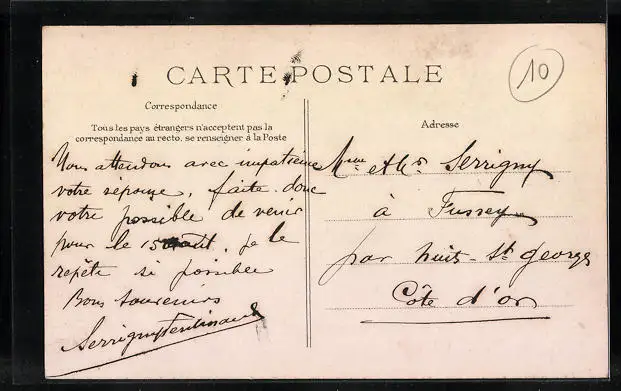 CARTE POSTALE
10
Correspondance
Tous les pays étrangers n'acceptent pas la
correspondance au recto. se renseigner à la Poste
Nous attendons avec impatience
votre réponse, faite donc
votre possible de venir
pour le 15 août. je le
repète si possible
Bons souvenirs
Serrigny Ferdinand
Adresse
Mme et Mr Serrigny
à Fussey
par nuits-St georges
Côte d'or